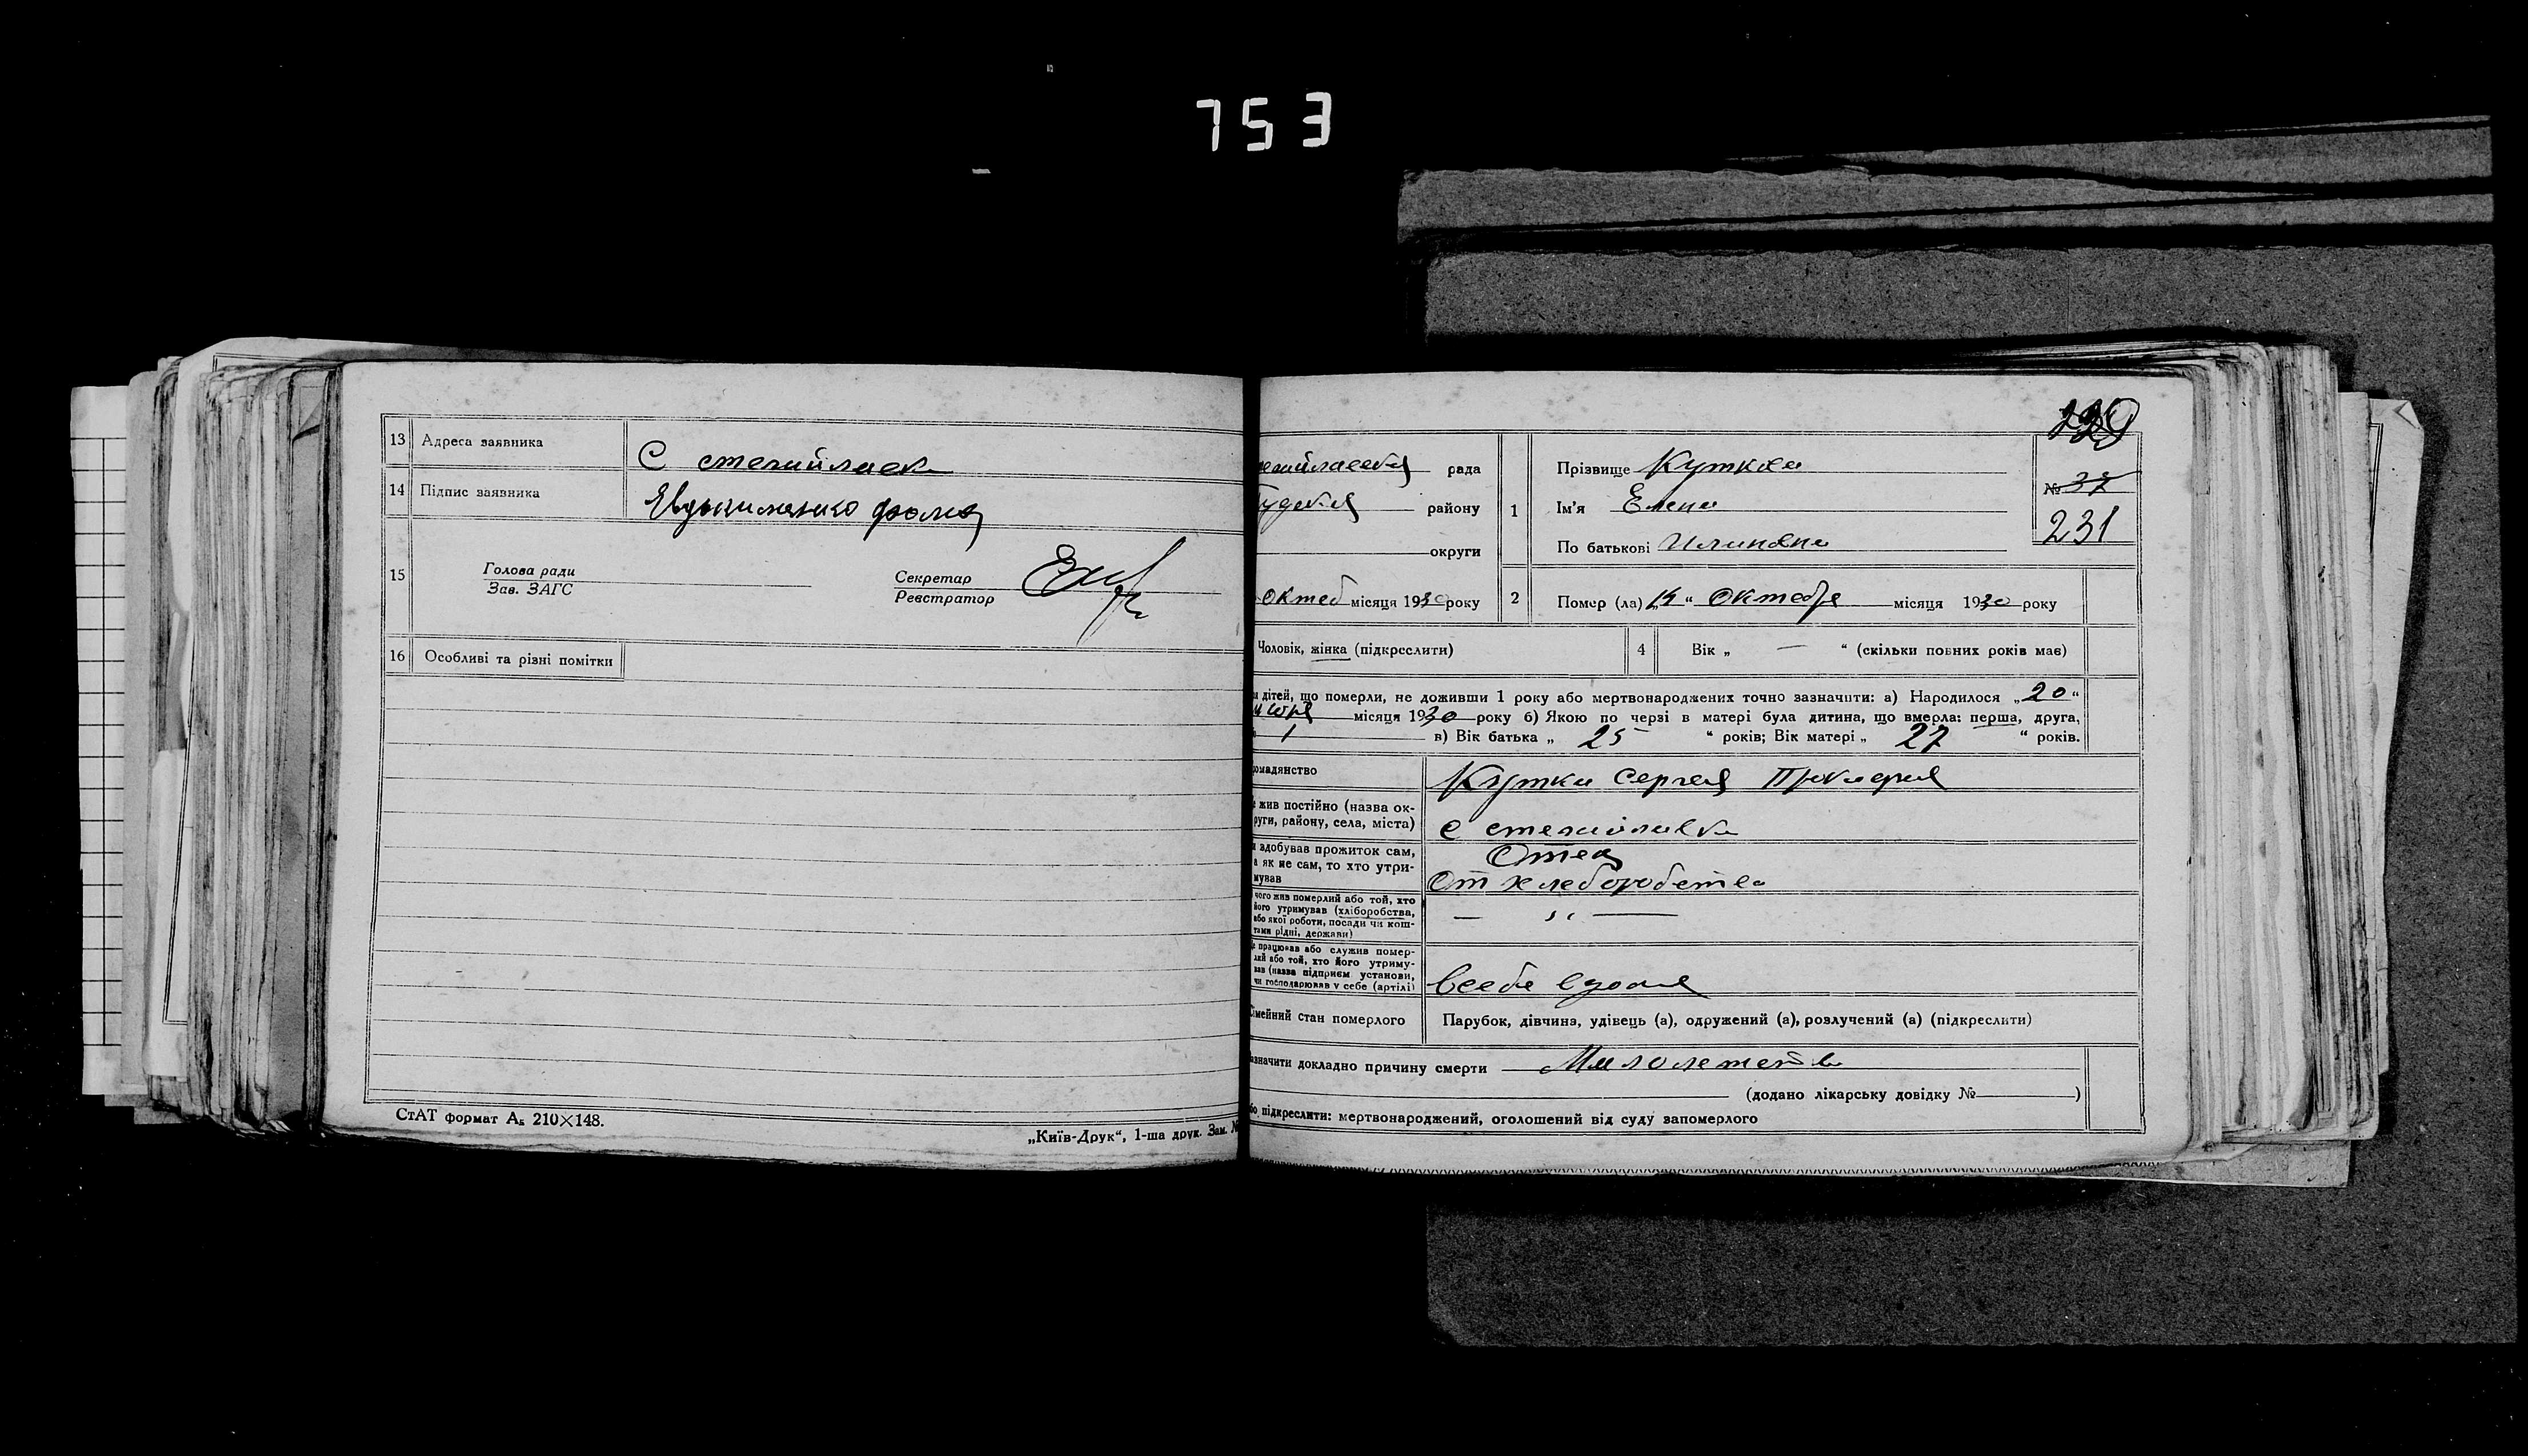 753
13 Адреса заявника
С стегайловк
14 Підпис заявника
Евдокименко фома
15 Голова ради
Зав. ЗАГС
Секретар
Реєстратор
16 Особливі та різні помітки
СтАТ формат А₅ 210×148.
„Київ-Друк“, 1-ша друк. Зам. №
рада
району
округи
октеб місяця 1930 року
1 Прізвище Кутква
Ім'я Елена
По батькові
№ 37
231
2 Помер (ла) „14“ Октебря місяця 1930 року
Чоловік, жінка (підкреслити)
4 Вік „ — “ (скільки повних років має)
дітей, що померли, не доживши 1 року або мертвонароджених точно зазначити: а) Народилося „20“
місяця 1930 року б) Якою по черзі в матері була дитина, що вмерла: перша, друга,
1 в) Вік батька „ 25 “ років; Вік матері „ 27 “ років.
омадянство
Кутки Сергея
жив постійно (назва ок-
руги, району, села, міста)
с
здобував прожиток сам,
а як не сам, то хто утри-
мував
Отец
От хлеборобства
чого жив померлий або той, хто
його утримував (хліборобства,
або якої роботи, посади чи кош-
тами рідні, держави)
— ,, —
працював або служив помер-
лий або той, хто його утриму-
вав (назва підприєм установи,
чи господарював у себе (артілі)
Всебе вдома
імейний стан померлого
Парубок, дівчина, удівець (а), одружений (а), розлучений (а) (підкреслити)
азначити докладно причину смерти Малолетства
(додано лікарську довідку № )
бо підкреслити: мертвонароджений, оголошений від суду запомерлого